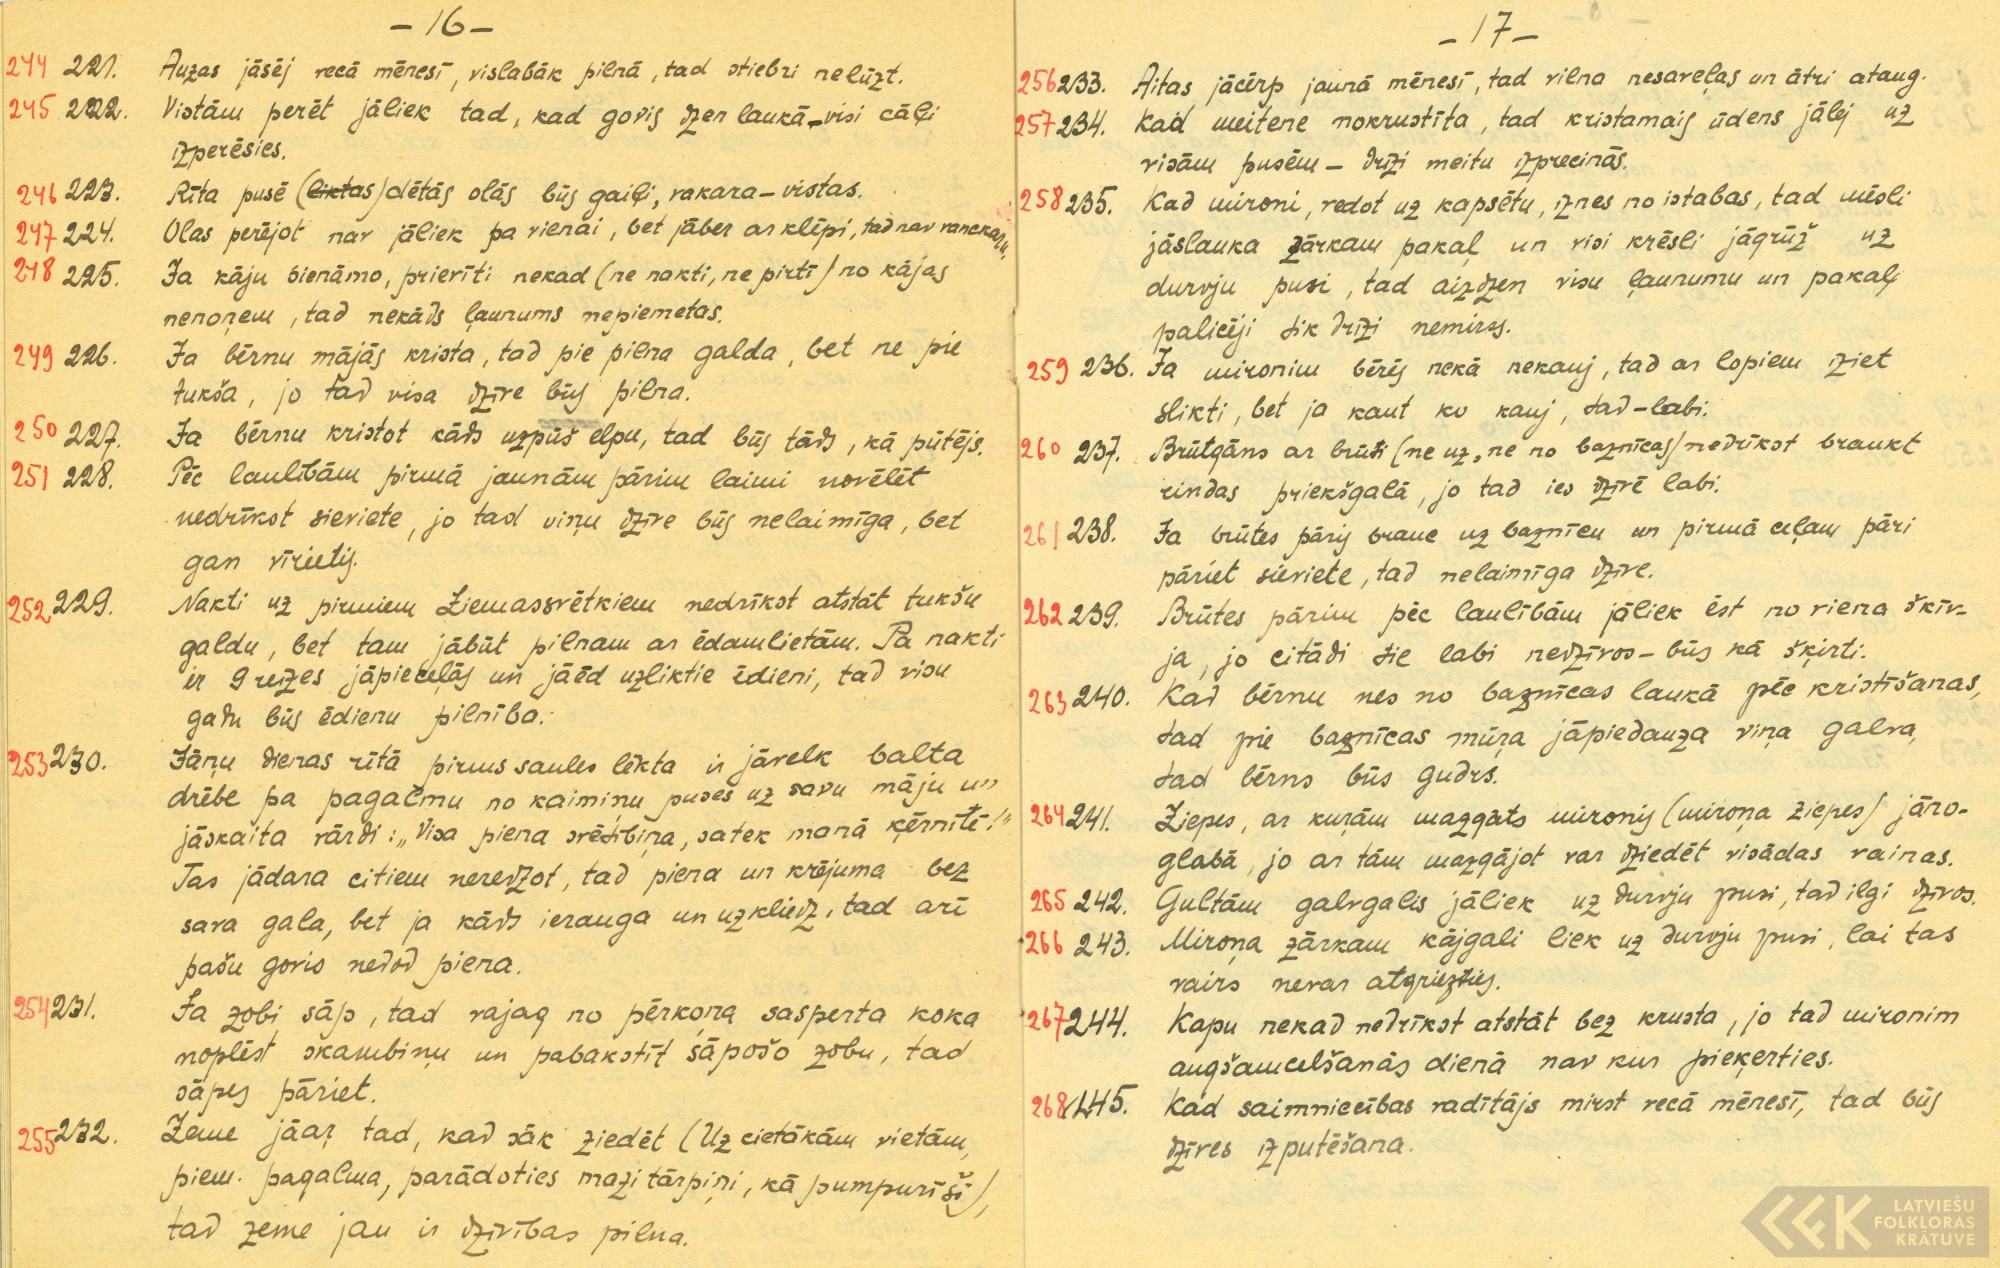 – 16 –
244 221. Auzas jāsēj vecā mēnesī, vislabāk pilnā, tad stiebri nelūzt.
245 222. Vistām perēt jāliek tad, kad govis dzen laukā – visi cāļi
izperēsies.
246 223. Rīta pusē (liktas) dētās olās būs gaiļi, vakara – vistas.
247 224. Olas perējot nav jāliek pa vienai, bet jāber ar klēpi, tad nav
248 225. Ja kāju sienāmo, prievīti nekad (ne nakti, ne pirtī) no kājas
nenoņem, tad nekāds ļaunums nepiemetas.
249 226. Ja bērnu mājās krista, tad pie pilna galda, bet ne pie
tukša, jo tad visa dzīve būs pilna.
250 227. Ja bērnu kristot kāds uzpūš elpu, tad būs tāds, kā pūtējs.
251 228. Pēc laulībām pirmā jaunām pārim laimi novēlēt
nedrīkst sieviete, jo tad viņu dzīve būs nelaimīga, bet
gan vīrietis.
252 229. Nakti uz pirmiem Ziemassvētkiem nedrīkst atstāt tukšu
galdu, bet tam jābūt pilnam ar ēdamlietām. Pa nakti
ir 9 reizes jāpieceļās un jāēd uzliktie ēdieni, tad visu
gadu būs ēdienu pilnība.
253 230. Jāņu dienas rītā pirms saules lēkta ir jāvelk balta
drēbe pa pagalmu no kaimiņu puses uz savu māju un
jāskaita vārdi: „Visa piena svētībiņa, satek manā ķērnītē!"
Tas jādara citiem neredzot, tad piena un krējuma bez
sava gala, bet ja kāds ierauga un uzkliedz, tad arī
pašu govis nedod piena.
254 231. Ja zobi sāp, tad vajag no pērkoņa sasperta koka
noplēst skambiņu un pabakstīt sāpošo zobu, tad
sāpes pāriet.
255 232. Zeme jāaŗ tad, kad sāk ziedēt (Uz cietākām vietām,
piem. pagalma, parādoties mazi tārpiņi, kā pumpurīši),
tad zeme jau ir dzīvības pilna.
– 17 –
256 233. Aitas jācērp jaunā mēnesī, tad vilna nesaveļas un ātri ataug.
257 234. Kad meitene nokrustīta, tad kristamais ūdens jālej uz
visām pusēm – drīzi meitu izprecinās.
258 235. Kad mironi, vedot uz kapsētu, iznes no istabas, tad mēsli
jāslauka zārkam pakaļ un visi krēsli jāgrūž uz
durvju pusi, tad aizdzen visu ļaunumu un pakaļ
palicēji tik drīzi nemirs.
259 236. Ja mironim bērēs nekā nekauj, tad ar lopiem iziet
slikti, bet ja kaut ko kauj, tad – labi.
260 237. Brūtgāns ar brūti (ne uz, ne no baznīcas) nedrīkst braukt
rindas priekšgalā, jo tad ies dzīvē labi.
261 238. Ja brūtes pāris brauc uz baznīcu un pirmā ceļam pāri
pāriet sieviete, tad nelaimīga dzīve.
262 239. Brūtes pārim pēc laulībām jāliek ēst no viena šķīv-
ja, jo citādi tie labi nedzīvos – būs kā šķirti.
263 240. Kad bērnu nes no baznīcas laukā pēc kristīšanas,
tad pie baznīcas mūŗa jāpiedauza viņa galva,
tad bērns būs gudrs.
264 241. Ziepes, ar kuŗām mazgāts mironis (miroņa ziepes) jāno-
glabā, jo ar tām mazgājot var dziedēt visādas vainas.
265 242. Gultām galvgalis jāliek uz durvju pusi, tad ilgi dzīvos.
266 243. Miroņa zārkam kājgali liek uz durvju pusi, lai tas
vairs nevar atgriezties.
267 244. Kapu nekad nedrīkst atstāt bez krusta, jo tad mironim
augšamcelšanās dienā nav kur pieķerties.
268 245. Kad saimniecības vadītājs mirst vecā mēnesī, tad būs
dzīves izputēšana.
LATVIEŠU
FOLKLORAS
KRĀTUVE